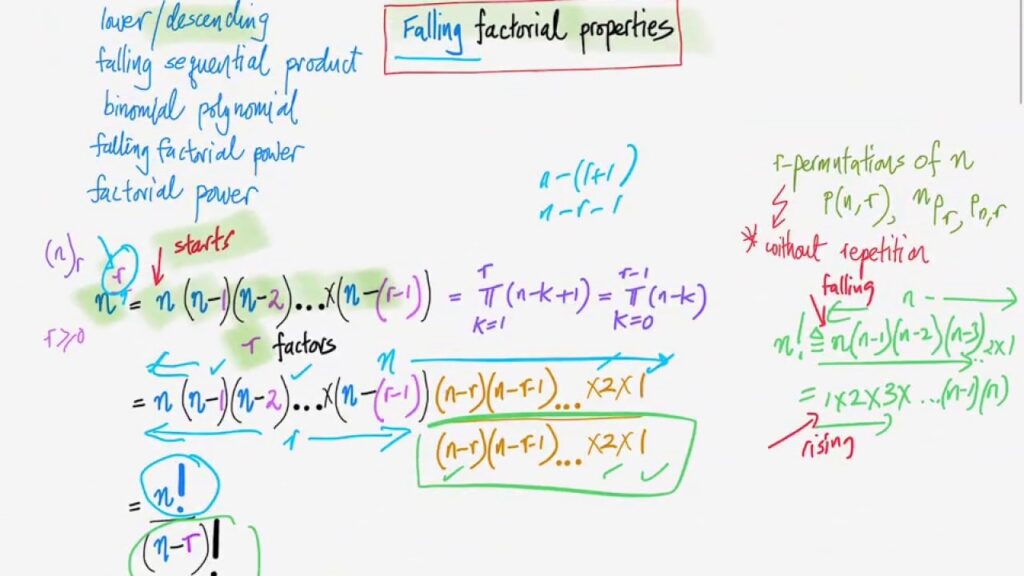 lower/descending
falling sequential product
binomial polynomial
falling factorial power
factorial power
Falling factorial properties
n-(r+1)
n-r-1
r-permutations of n
P(n,r), nPr, Pn,r
* without repetition
(n)r
starts
r≥0
n^r = n (n-1)(n-2)...×(n-(r-1)) = r π k=1 (n-k+1) = r-1 π k=0 (n-k)
r factors
n
= n (n-1)(n-2)...×(n-(r-1)) (n-r)(n-r-1)...×2×1
r
(n-r)(n-r-1)...×2×1
= n!
(n-r)!
falling
n
n! ≜ n(n-1)(n-2)(n-3)...2×1
= 1×2×3×...(n-1)(n)
rising